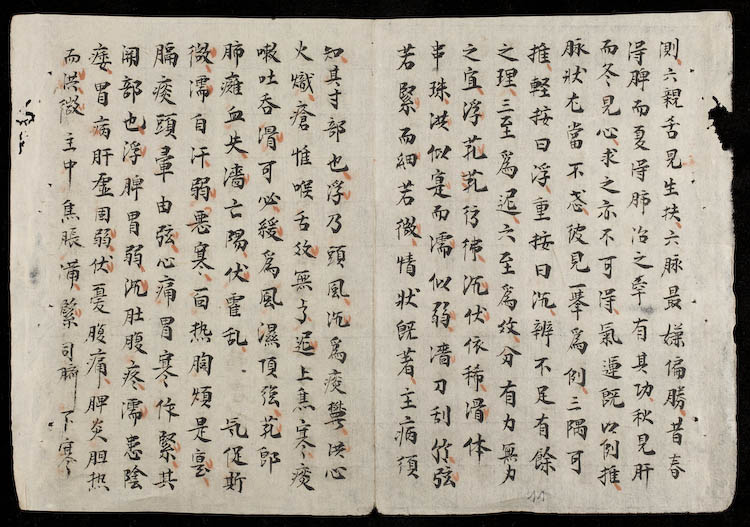 測六親舌見生扶六脉最嫌偏勝昔春
得脾而夏得肺治之牽有其功秋見肝
而冬見心求之亦不可得氣運既以例推
脉狀尤當不忒彼見一舉爲例三隅可
推輕按曰浮重按曰沉辨不足有餘
之理三至爲迟六至爲数分有力無力
之宜浮芤芤彷彿沉伏依稀滑体
串珠洪似寔而濡似弱濇刀刮竹弦
若緊而細若微情狀既著主病須
知其寸部也浮乃頭風沉爲痰鬱洪心
火熾瘡惟喉舌数無亏迟上焦寒痰
嗽吐吞滑可必緩爲風濕頂強芤郎
肺癰血失濇亡陽伏霍乱氣促斯
微濡自汗弱惡寒而热胸煩是寔
膈痰頭暈由弦心痛胃寒作緊其
関部也浮脾胃弱沉肚腹疼濡患陰
痿胃病肝虚因弱伏憂腹痛脾炎胆热
而洪微主中焦脹滯緊司 下寒